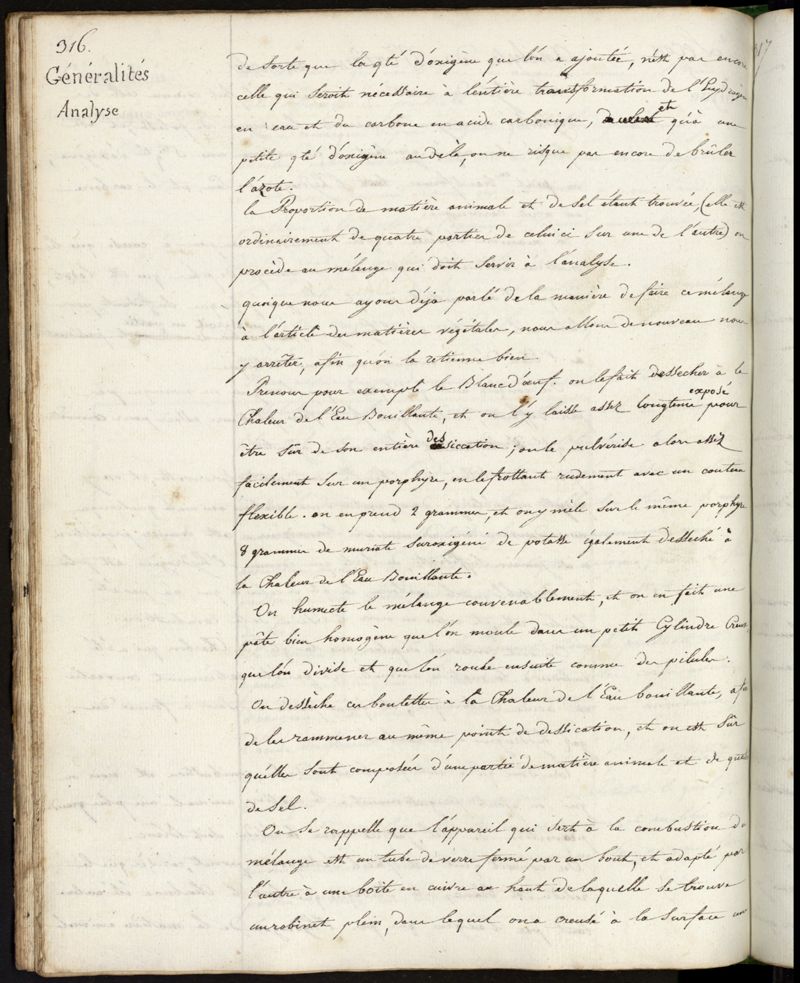 316.
Généralités
Analyse
de sorte que la qté d'oxigène que l'on a ajoutée, n'est pas encore
celle qui seroit nécessaire à l'entière transformation de l'hydrogène
en eau et du carbone en acide carbonique, et qu'à une
petite qté d'oxigène au delà, on ne risque pas encore de brûler
l'azote.
la Proportion de matière animale et de sel étant trouvée, (elle est
ordinairement de quatre parties de celui ci sur une de l'autre) on
procède au mélange qui doit servir à l'analyse.
quoique nous ayons déjà parlé de la manière de faire ce mélange
à l'article des matières végétales, nous allons de nouveau nous
y arrêter, afin qu'on la retienne bien.
Prenons pour exemple le Blanc d'œuf. on le fait dessecher à la
Chaleur de l'Eau Bouillante, et on l'y laisse assez longtems exposé pour
être sûr de son entière dessiccation; on le pulvérise alors assez
facilement sur un porphyre, en le frottant rudement avec un couteau
flexible. on en prend 2 grammes, et on y mêle sur le même porphyre
8 grammes de muriate suroxigéné de potasse également desséché à
la Chaleur de l'Eau Bouillante.
On humecte le mélange convenablement, et on en fait une
pâte bien homogène que l'on moule dans un petit Cylindre Creux,
que l'on divise et que l'on roule ensuite comme des pilules.
On dessèche ces boulettes à la Chaleur de l'Eau bouillante, afin
de les rammener au même point de dessication, et on est sûr
qu'elles sont composées d'une partie de matière animale et de quatre
de sel.
On se rappelle que l'appareil qui sert à la combustion du
mélange est un tube de verre fermé par un bout, et adapté par
l'autre à une boîte en cuivre au haut de laquelle se trouve
un robinet plein, dans lequel on a creusé à la surface une